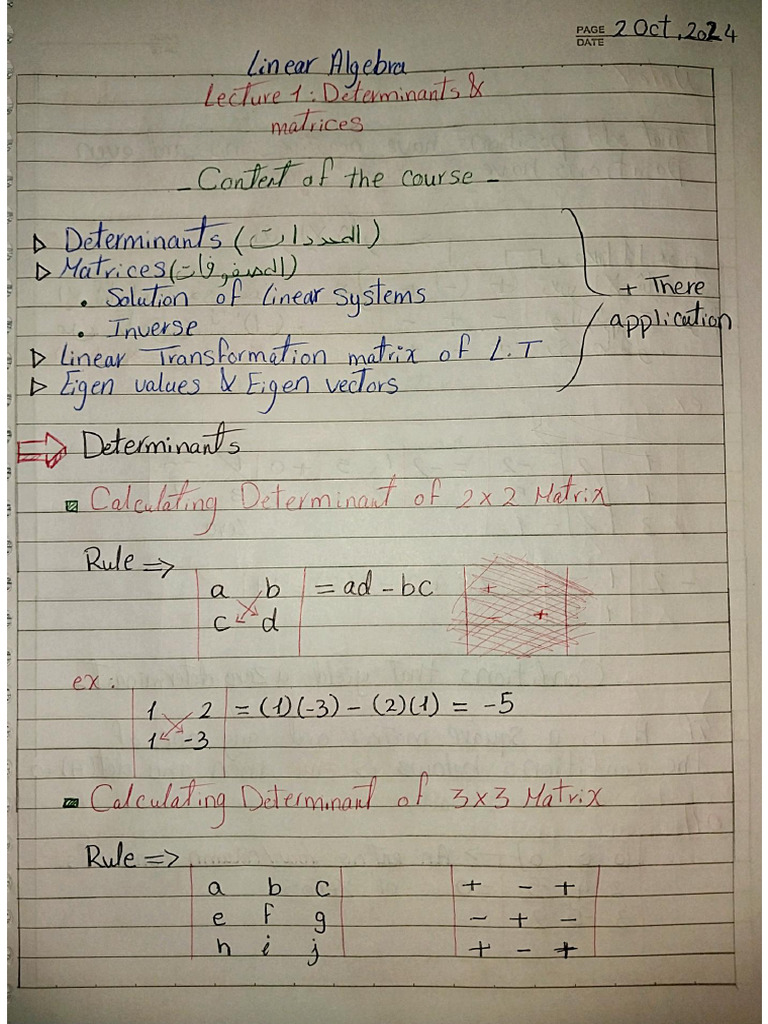 PAGE
DATE 2 Oct, 2024
Linear Algebra
Lecture 1: Determinants &
matrices
- Content of the course -
▷ Determinants (المحددات)
▷ Matrices (المصفوفات)
• Solution of linear systems
• Inverse
+ There
application
▷ Linear Transformation matrix of L.T
▷ Eigen values & Eigen vectors
⇒ Determinants
▪ Calculating Determinant of 2x2 Matrix
Rule ⇒
a b = ad - bc
c d
+ -
- +
ex:
1 2 = (1)(-3) - (2)(1) = -5
1 -3
▪ Calculating Determinant of 3x3 Matrix
Rule =>
a b c + - +
e f g - + -
h i j + - +